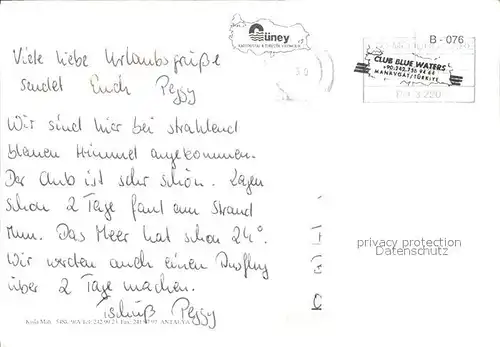 Güney
B - 076
CLUB BLUE WATERS
MANAVGAT/TÜRKİYE
Viele liebe Urlaubsgrüße
sendet Euch Peggy
Wir sind hier bei strahlend
blauen Himmel angekommen.
Der Club ist sehr schön. Lagen
schon 2 Tage faul am Strand
rum. Das Meer hat schon 24°.
Wir werden auch einen Ausflug
über 2 Tage machen.
Tschüß Peggy
privacy protection
Datenschutz
ANTALYA